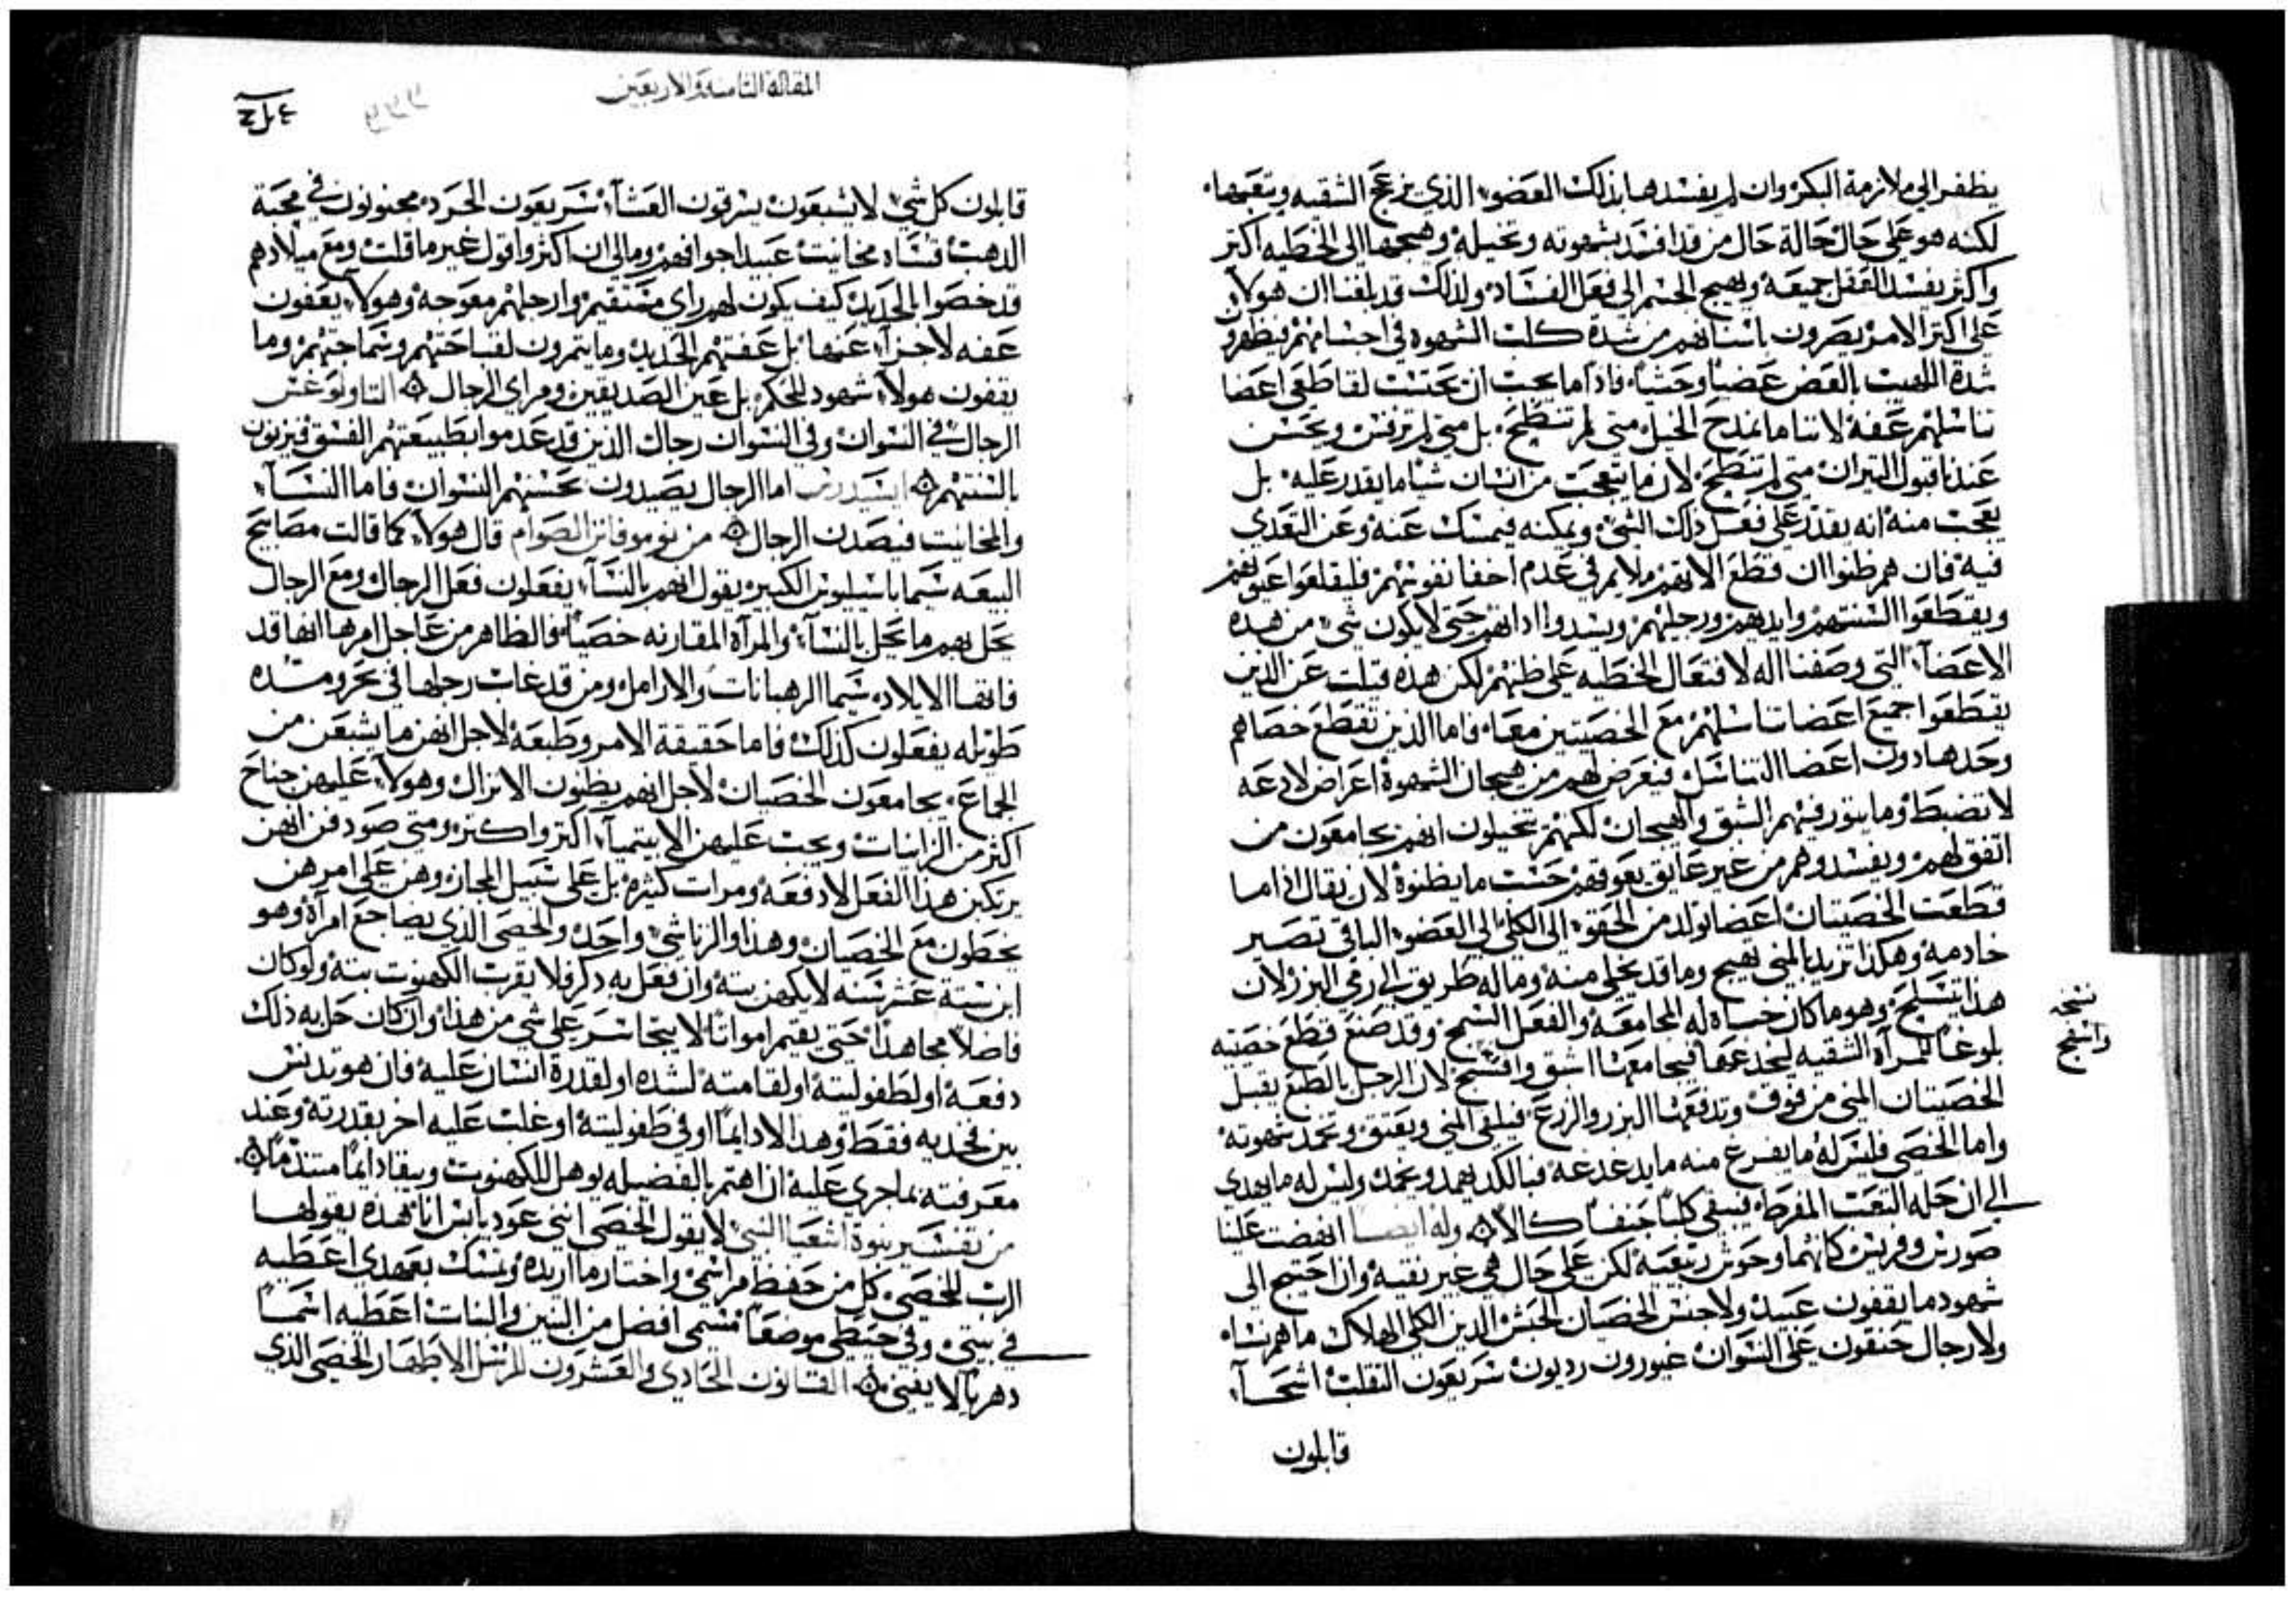 يظفر الى ملازمة البكر وان لم يفسدها بذلك العضو الذى يزعج الشقيه ويتعبها
لكنه هو على حال حالة حال من قد افسد بشهوته وتخيله وهيجها الى الخطيه اكتر
واكثر يفسد العقل جميعه ويهيج الجسم الى فعل الفساد ولذلك قد بلغنا ان هولاء
على اكتر الامر يصرون باسنانهم من شدة كلب الشهوه فى اجسامهم فيظهرون
شدة اللهيب بالعض عضيا وحشيا فاذا ما يجب ان تحتسب لقاطعى اعضا
تناسلهم عفة لاننا ما نمدح الخيل متى لم تنطح بل متى لم ترفس ونحسن
عندنا قبول التيران متى لم تنطح لان ما يتعجب من انسان شيا ما يقدر عليه بل
يعجب منه انه يقدر على فعل ذلك الشى ويمكنه فيمسك عنه وعن التعدى
فيه فان هم ظنوا ان قطع الالات يلايم فى عدم اخفا نفوسهم فليقلعوا عيونهم
ويقطعوا السنتهم وايديهم ورجليهم ويسدوا ادانهم حتى لا يكون شى من هده
الاعضا التى وصفنا اله لافتعال الخطيه على ظنهم لكن هده قيلت عن الذين
يقطعوا جميع اعضا تناسلهم مع الخصيتين معا فاما الذين تقطع خصاهم
وحدها دون اعضا التناسل فيعرض لهم من هيجان الشهوة اعراض لادعه
لا تضبط وما يتور فيهم الشبق والهيجان لكنهم يتخيلون انهم يجامعون من
اتفق لهم ويفسدوهم من غير عايق يعوقهم حسب ما يظنوه لان يقال اذا ما
قطعت الخصيتان اعضا تولد من الحقوة الى الكلى الى العضو الباقى تصير
خادمة وهكذا تريد المنى تهيج وما قد يخلى منه وما له طريق الى رمى البزر لان
هذا تسلح وهو ما كان خساه له المجامعة والفعل السمج وقد صنع قطع خصيته
نسخه
واسمج
بلوغا للمرآه الشقيه ليخدعها فيجامعها اشق واقبح لان الرجل بالطبع يقبل
الخصيتان المنى من فوق وتدفعها البزر والزرع فيلقى المنى ويعتق وتخمد شهوته
واما الخصى فليس له ما يفرغ منه ما يدغدغه فبالكد يهمد ويخمد وليس له ما يهدى
الى ان حله التعب المفرط فيبقى كلبا حنفا كالا وله ايضا انهضت علينا
صورين وفرينن كانهما وحوش رتبعيه لكن على حال هى غير نقيه وان احتيج الى
شهود ما يقفون عبيد ولا جنس الخصيان الجنس الدين الكلى الهلاك ما هم نساء
ولا رجال حنقون على النسوان غيورون رديون سريعون التقلب اشحاء
قابلون
المقاله التامنه والاربعين
قابلون كل شى لا يشبعون يسرقون العشاء سريعون الحرد مجنونون فى محبة
الدهب قساه مخانيث عبيد اجوافهم ومالى ان اكثر واقول غير ما قلت ومع ميلادهم
قد خصوا بالحديد كيف يكون لهم راى مستقيم وارجلهم معوجه وهولاء يعفون
عفه لا جزاء عنها بل عفتهم الحديد وما يتمرون لقباحتهم وسماجتهم وما
يقفون هولاء شهود للحكم بل عين الصديقين ومراى الرجال التاولوغس
الرجال فى النسوان وفى النسوان رجال الذين قد عدموا بطبيعتهم الفسق فيزنون
بالسنتهم ايسيدرس اما الرجال يصيدون بحسنهم النسوان فاما النساء
والمخانيث فيصدن الرجال من نوموقانن الصوام قال هولاء كما قالت مصابيح
البيعه سيما باسيليوس الكبير يقول انهم بالنساء يفعلون فعل الرجال ومع الرجال
يحل بهم ما يحل بالنساء والمرآه المقارنه خصيا فالظاهر من عاجل امرها انها قد
فاتها الايلاد سيما الرهبانات والارامل ومن قد غاب رجلها فى بحر ومده
طويله يفعلون كذلك فاما حقيقة الامر وطبعه لاجل انهن ما يشبعن من
الجماع يجامعون الخصيان لاجل انهم يبطيون الانزال وهولاء عليهن جناح
اكثر من الزانيات ويجب عليهن الابيتميا اكتر واكتر ومتى صودفن انهن
يرتكبن هذا الفعل لا دفعه ومرات كثيره بل على سبيل المجاز وهن على امرهن
يخطون مع الخصيان وهذا والزنا شى واحد والخصى الذى يضاجع امرآة وهو
ابن ستة عشر سنه لا يكهن بته وان فعل به دكر فلا يقرب الكهنوت بته ولو كان
فاضلا مجاهدا حتى يقيم امواتا لا يتجاسر على شى من هذا وان كان حل به ذلك
دفعه او لطفوليته او لقامته لشده او لقدرة انسان عليه فان هو تدنس
بين فخديه فقط وهدا لا دايما او فى طفوليته او غلب عليه اخر بقدرته وعند
معرفته بما جرى عليه ان اهتم بالفضيله يوهل للكهنوت ويبقا دايما متندما
من تفسير نبوة اشعيا النبى لا يقول الخصى اننى عود يابس انا هده يقولها
الرب للخصى كل من حفظ مراسمى واختار ما اريده وتمسك بعهدى اعطيه
فى بيتى وفى حيطى موضعا مسمى افضل من البنين والبنات اعطيه اسما
دهريا لا يفنى القانون الحادى والعشرون للرسل الاطهار الخصى الذى